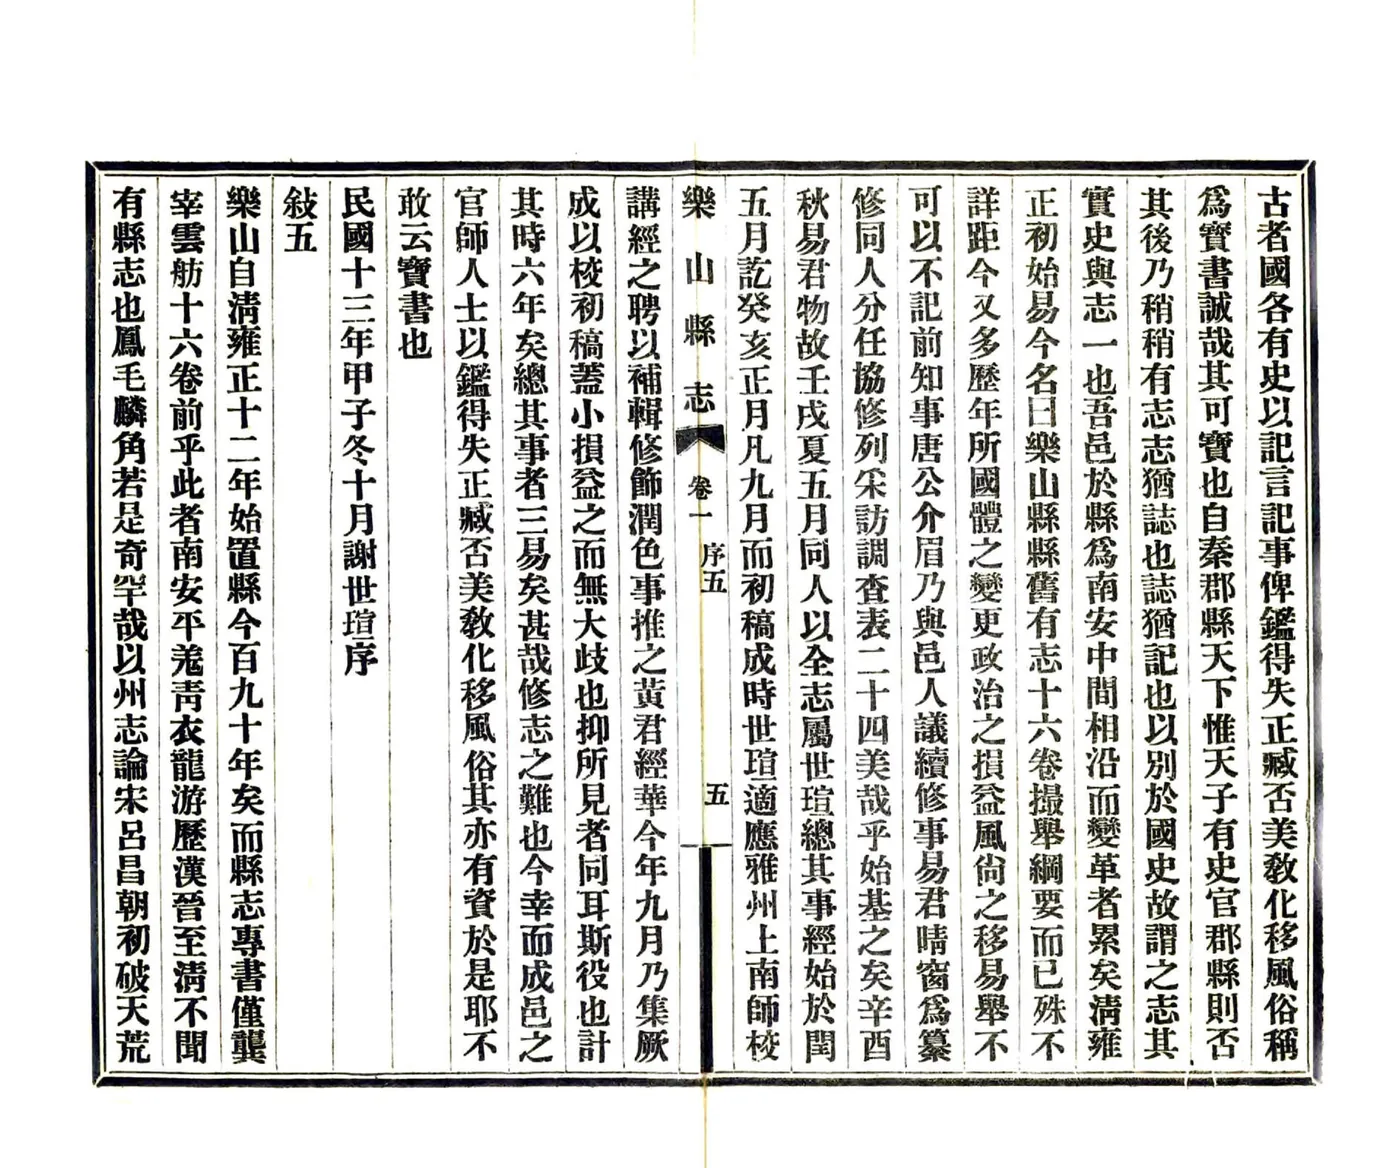 古者國各有史以記言記事俾鑑得失正臧否美敎化移風俗稱
爲寶書誠哉其可寶也自秦郡縣天下惟天子有史官郡縣則否
其後乃稍稍有志志猶誌也誌猶記也以別於國史故謂之志其
實史與志一也吾邑於縣爲南安中間相沿而變革者累矣淸雍
正初始易今名曰樂山縣縣舊有志十六卷撮舉綱要而已殊不
詳距今又多歷年所國體之變更政治之損益風尙之移易舉不
可以不記前知事唐公介眉乃與邑人議續修事易君晴窗爲纂
修同人分任協修列采訪調查表二十四美哉乎始基之矣辛酉
秋易君物故壬戌夏五月同人以全志屬世瑄總其事經始於閏
五月訖癸亥正月凡九月而初稿成時世瑄適應雅州上南師校
樂山縣志 卷一 序五 五
講經之聘以補輯修飾潤色事推之黃君經華今年九月乃集厥
成以校初稿蓋小損益之而無大歧也抑所見者同耳斯役也計
其時六年矣總其事者三易矣甚哉修志之難也今幸而成邑之
官師人士以鑑得失正臧否美敎化移風俗其亦有資於是耶不
敢云寶書也
民國十三年甲子冬十月謝世瑄序
敍五
樂山自淸雍正十二年始置縣今百九十年矣而縣志專書僅龔
宰雲舫十六卷前乎此者南安平羌靑衣龍游歷漢晉至淸不聞
有縣志也鳳毛麟角若是奇罕哉以州志論宋呂昌朝初破天荒